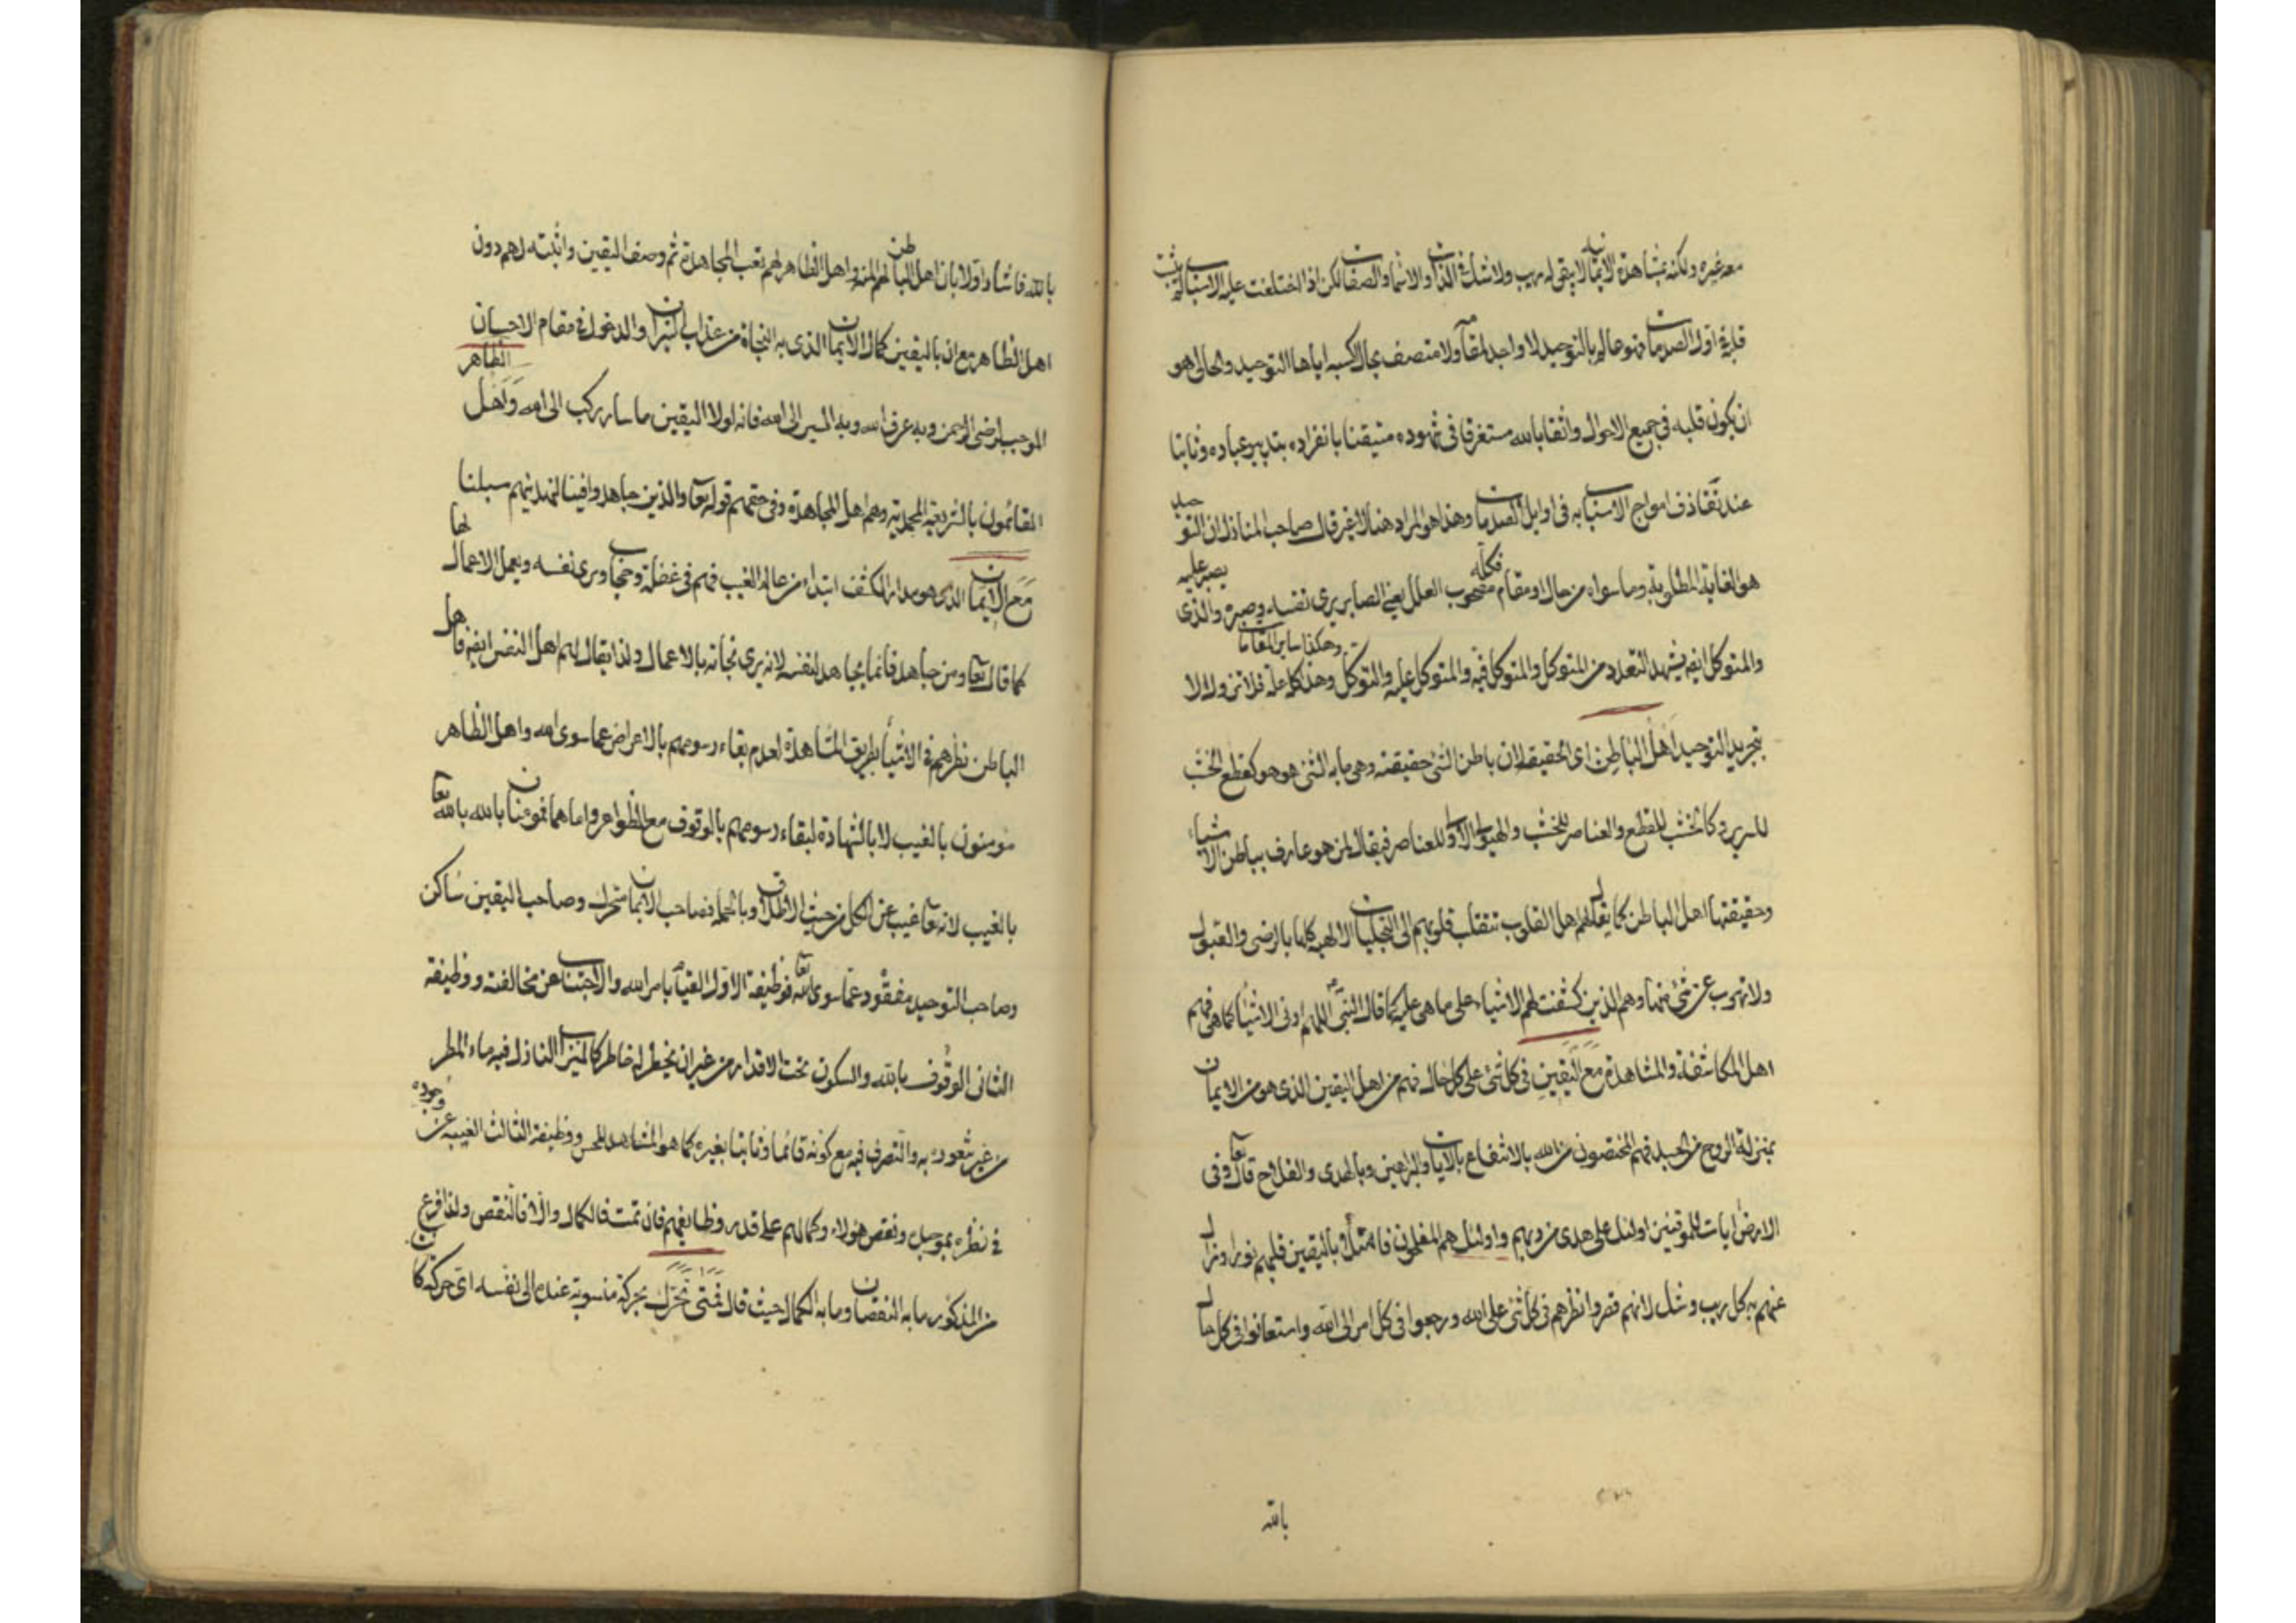 معه غيره ولكنه بمشاهدة الايمانية لا يبقى له ريب ولا شك في الذات والاسماء والصفات لكن اذا اختلفت عليه الاسباب لم يثبت
قلبه في اول الصدمات فهو عالم بالتوحيد لا واجد لمقامه ولا متصف بحال اكسبه اياها التوحيد والحال هو
ان يكون قلبه في جميع الاحوال واثقا بالله مستغرقا في شهوده متيقنا بانفراده بتدبير عباده وثابتا
عند تقاذف امواج الاسباب به في اوايل الصدمات وهذا هو المراد هنا لا غير قال صاحب المنازل ان التوحيد
هو الغاية المطلوبة وما سواه من حال او مقام فكله مصحوب العلل يعني الصابر يرى نفسه وصبره والذي يصبر عليه
وهكذا ساير المقامات
والمتوكل ايضا يشهد التعدد من المتوكل والمتوكل فيه والمتوكل عليه والتوكل وهذا كله علة فلا تزول الا
بتجريد التوحيد اهل الباطن اى الحقيقة لان باطن الشئ حقيقته وهى ما به الشئ هو هو كقطع الخشب
للسرير وكالخشب للقطع والعناصر للخشب والهيولى الاولى للعناصر فيقال لمن هو عارف بباطن الاشياء
وحقيقتها اهل الباطن كما يقال لهم اهل القلوب تتقلب قلوبهم الى التجليات الالهية كلها بالرضى والقبول
ولا تهرب عن شئ منها وهم الذين كشفت لهم الاشياء على ما هى عليه كما قال النبي اللهم ارنى الاشياء كما هى فهم
اهل المكاشفة والمشاهدة مع اليقين في كل شئ على كل حال فهم من اهل اليقين الذى هو من الايمان
بمنزلة الروح من الجسد فهم المختصون من الله بالانتفاع بالايات والبراهين وبالهدى والفلاح قال تعا وفى
الارض ايات للموقنين اولئك على هدى من ربهم واولئك هم المفلحون فامتلأ باليقين قلبهم نورا وزال
عنهم به كل ريب وشك لانهم قصروا نظرهم في كل شئ على الله ورجعوا فى كل امر الى الله واستعانوا فى كل حال
بالله
بالله فاشار اولا بان اهل الباطن لهم المنة واهل الظاهر لهم تعب المجاهدة ثم وصف اليقين واثبته لهم دون
اهل الظاهر مع ان باليقين كمال الايمان الذى به النجاة من عذاب النيران والدخول في مقام الاحسان
الموجب لرضى الرحمن وبه عرف الله وبه السير الى الله فانه لولا اليقين ما سار ركب الى الله واهل الظاهر
القائمون بالشريعة المحمدية وهم اهل المجاهدة وفى حقهم قوله تعا والذين جاهدوا فينا لنهدينهم سبلنا
مع الايمان الذى هو مدار الكشف ابتداء من عالم الغيب فهم فى غفلة وحجاب ويرى نفسه ويعمل الاعمال لها
كما قال تعا ومن جاهد فانما يجاهد لنفسه لانه يرى نجاته بالاعمال ولذا يقال لهم اهل النفس ايضا فاهل
الباطن نظرهم في الاشياء بطريق المشاهدة لعدم بقاء رسومهم بالاعراض عما سوى الله واهل الظاهر
مومنون بالغيب لا بالشهادة لبقاء رسومهم بالوقوف مع الظواهر واما هما فمومنان بالله تعا
بالغيب لانه تعا غيب عن الكل من حيث الاطلاق وبالجملة فصاحب الايمان متحرك وصاحب اليقين ساكن
وصاحب التوحيد مفقود عما سوى الله تعا فوظيفة الاول القيام بامر الله والاجتناب عن مخالفته ووظيفة
الثانى الوقوف بالله والسكون تحت الاقدار من غير ان يخطر له خاطر كالميزاب النازل فيه ماء المطر
من غير شعوره به والتصرف فيه مع كونه قائما وثابتا بغيره كما هو المشاهد للحس ووظيفة الثالث الغيبة عن وجوده
في نظره بموجده ونقص هؤلاء وكمالهم على قدر وظايفهم فان تمت فالكمال والا فالنقص ولذا فرع
من المذكور ما به النقصان وما به الكمال حيث قال فمتى تحرك بحركة منسوبة عنده الى نفسه اى حركة كانت